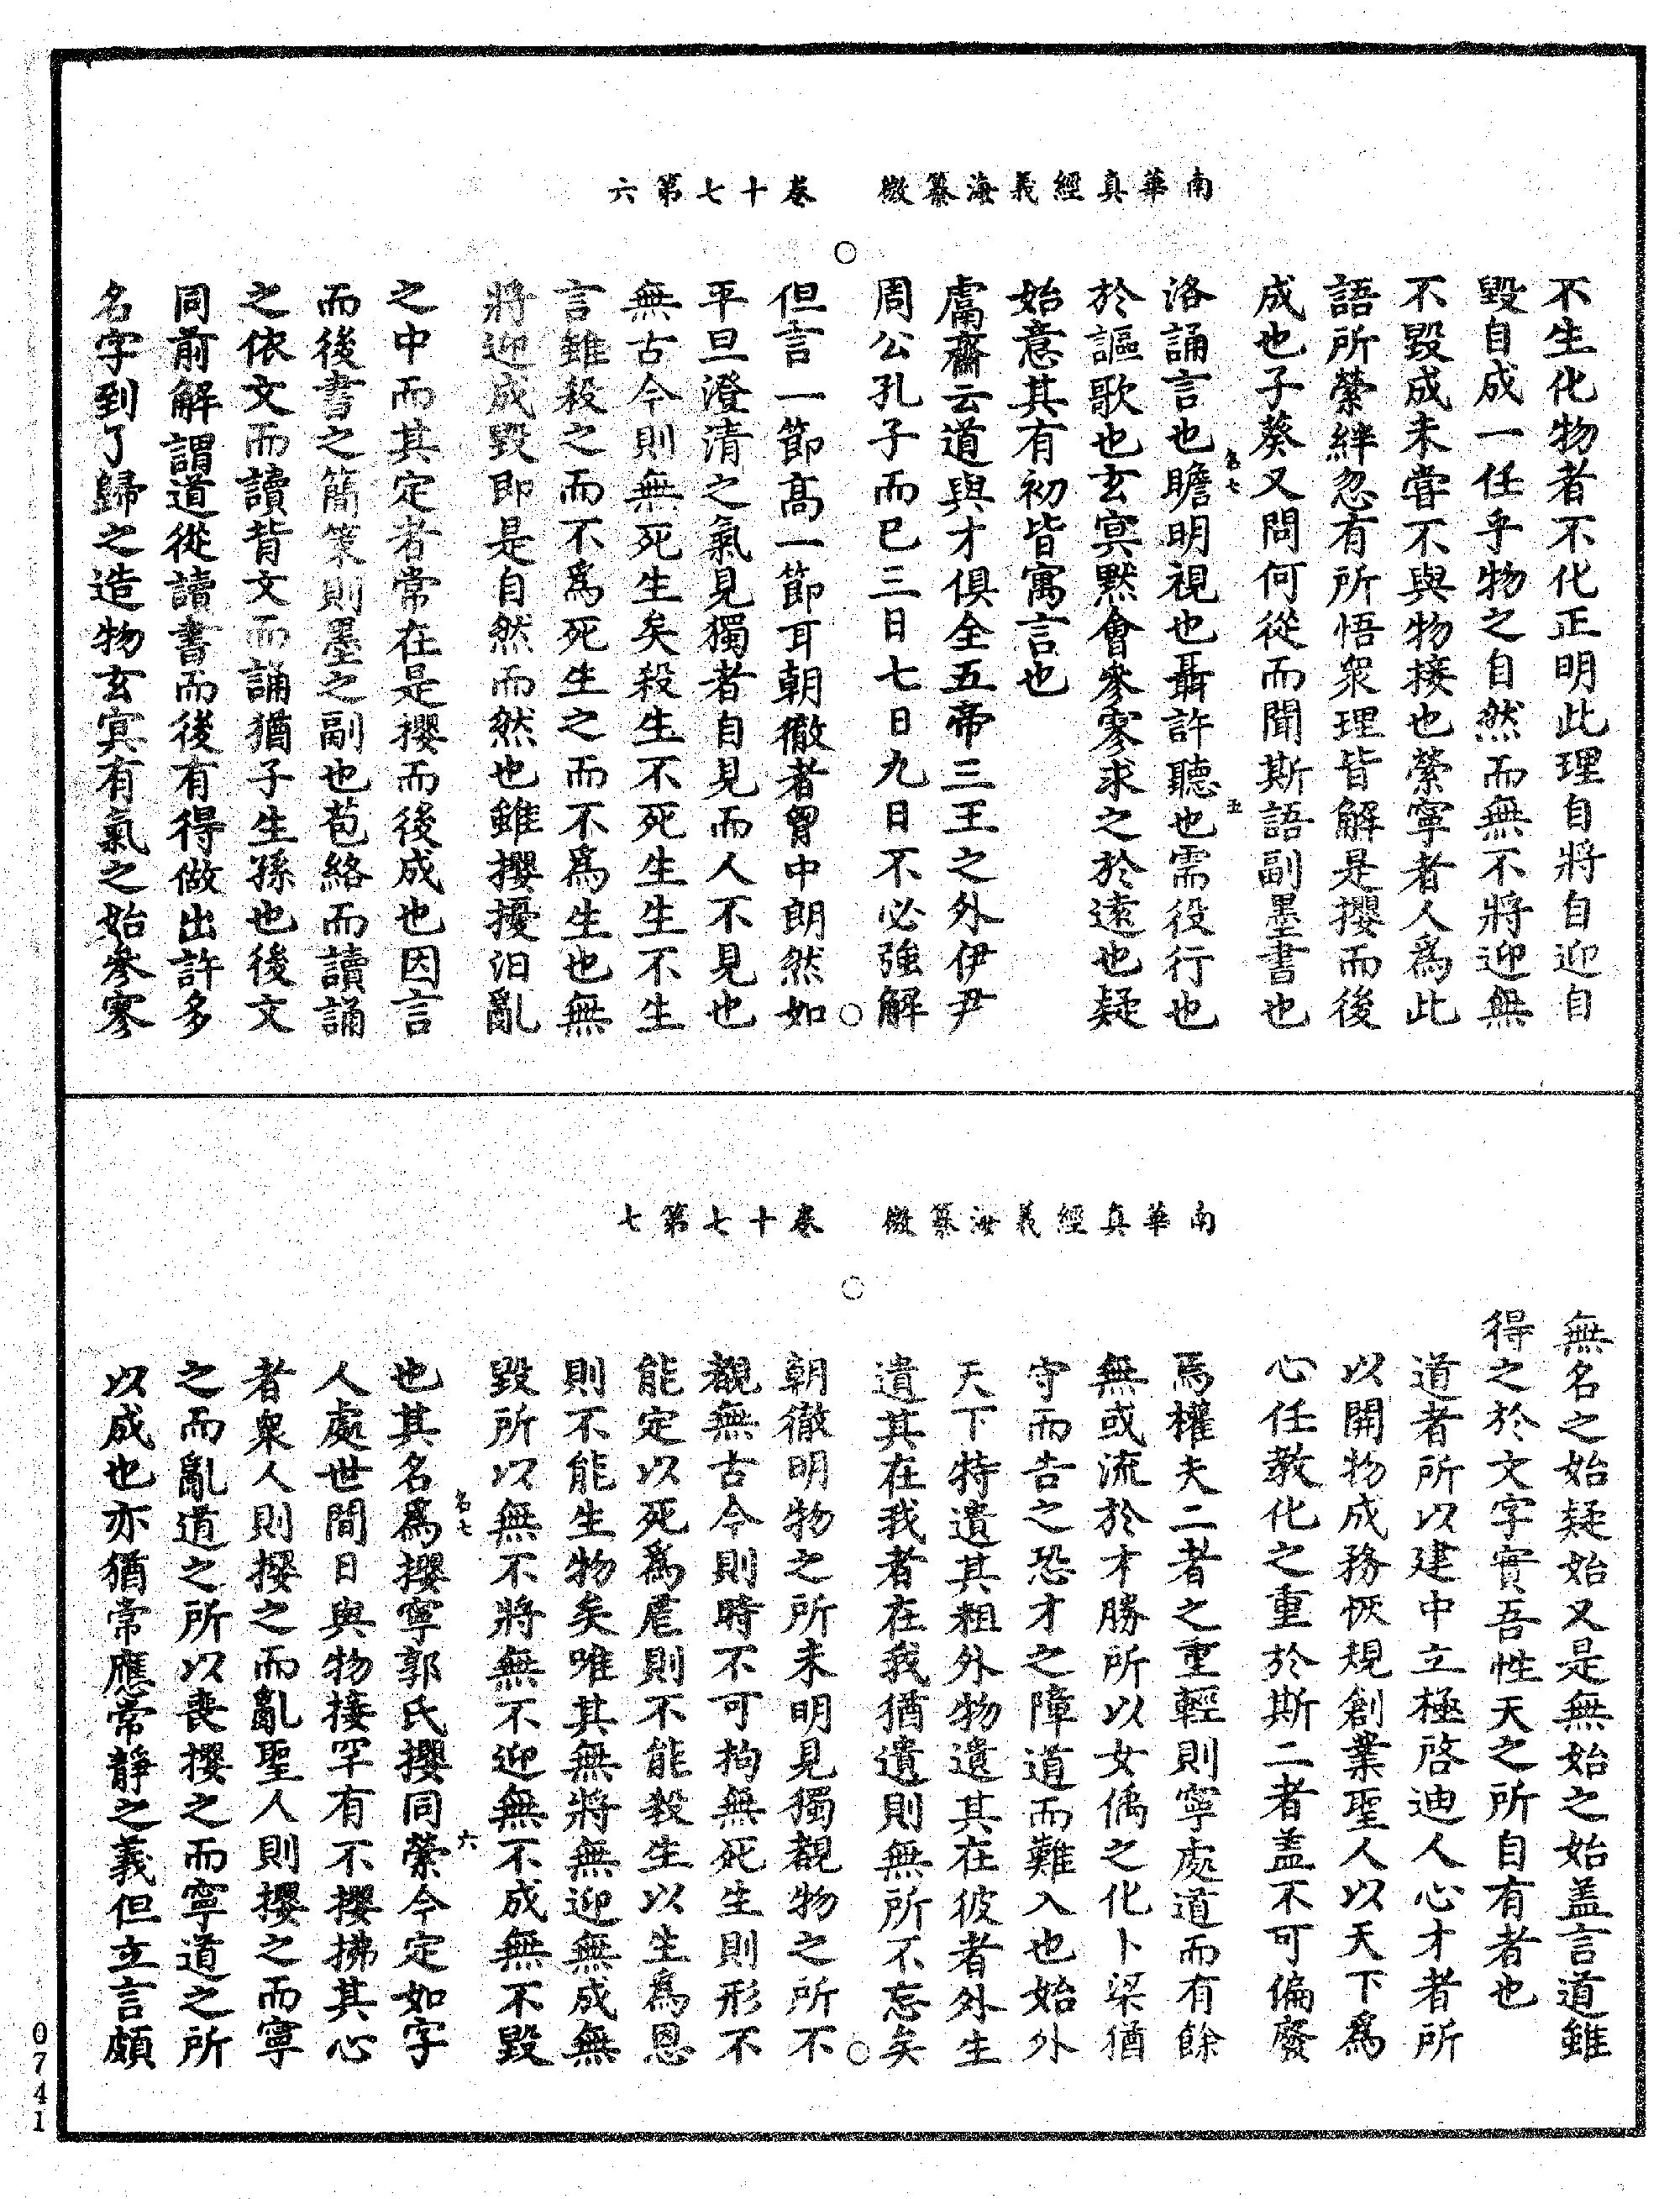 南華真經義海纂微　卷十七第六
不生化物者不化正明此理自將自迎自
毀自成一任乎物之自然而無不將迎無
不毀成未嘗不與物接也縈寧者人為此
語所縈絆忽有所悟衆理皆解是攖而後
成也子葵又問何從而聞斯語副墨書也
洛誦言也瞻明視也聶許聽也需役行也
於謳歌也玄冥默會參寥求之於遠也疑
始意其有初皆寓言也
鬳齋云道與才俱全五帝三王之外伊尹
周公孔子而已三日七日九日不必強解
但言一節髙一節耳朝徹者胷中朗然如
平旦澄清之氣見獨者自見而人不見也
無古今則無死生矣殺生不死生生不生
言雖殺之而不爲死生之而不爲生也無
將迎成毀即是自然而然也雖攖擾汩亂
之中而其定者常在是攖而後成也因言
而後書之簡策則墨之副也苞絡而讀誦
之依文而讀背文而誦猶子生孫也後文
同前解謂道從讀書而後有得做出許多
名字到了歸之造物玄冥有氣之始參寥
南華真經義海纂微　卷十七第七
無名之始疑始又是無始之始盖言道雖
得之於文字實吾性天之所自有者也
道者所以建中立極啓迪人心才者所
以開物成務恢規創業聖人以天下爲
心任教化之重於斯二者盖不可偏廢
焉權夫二者之重輕則寧處道而有餘
無或流於才勝所以女偊之化卜梁猶
守而告之恐才之障道而難入也始外
天下特遺其粗外物遺其在彼者外生
遺其在我者在我猶遺則無所不忘矣
朝徹明物之所未明見獨覩物之所不
覩無古今則時不可拘無死生則形不
能定以死爲虐則不能殺生以生爲恩
則不能生物矣唯其無將無迎無成無
毀所以無不將無不迎無不成無不毀
也其名爲攖寧郭氏攖同縈今定如字
人處世間日與物接罕有不攖拂其心
者衆人則攖之而亂聖人則攖之而寧
之而亂道之所以喪攖之而寧道之所
以成也亦猶常應常靜之義但立言頗
0741